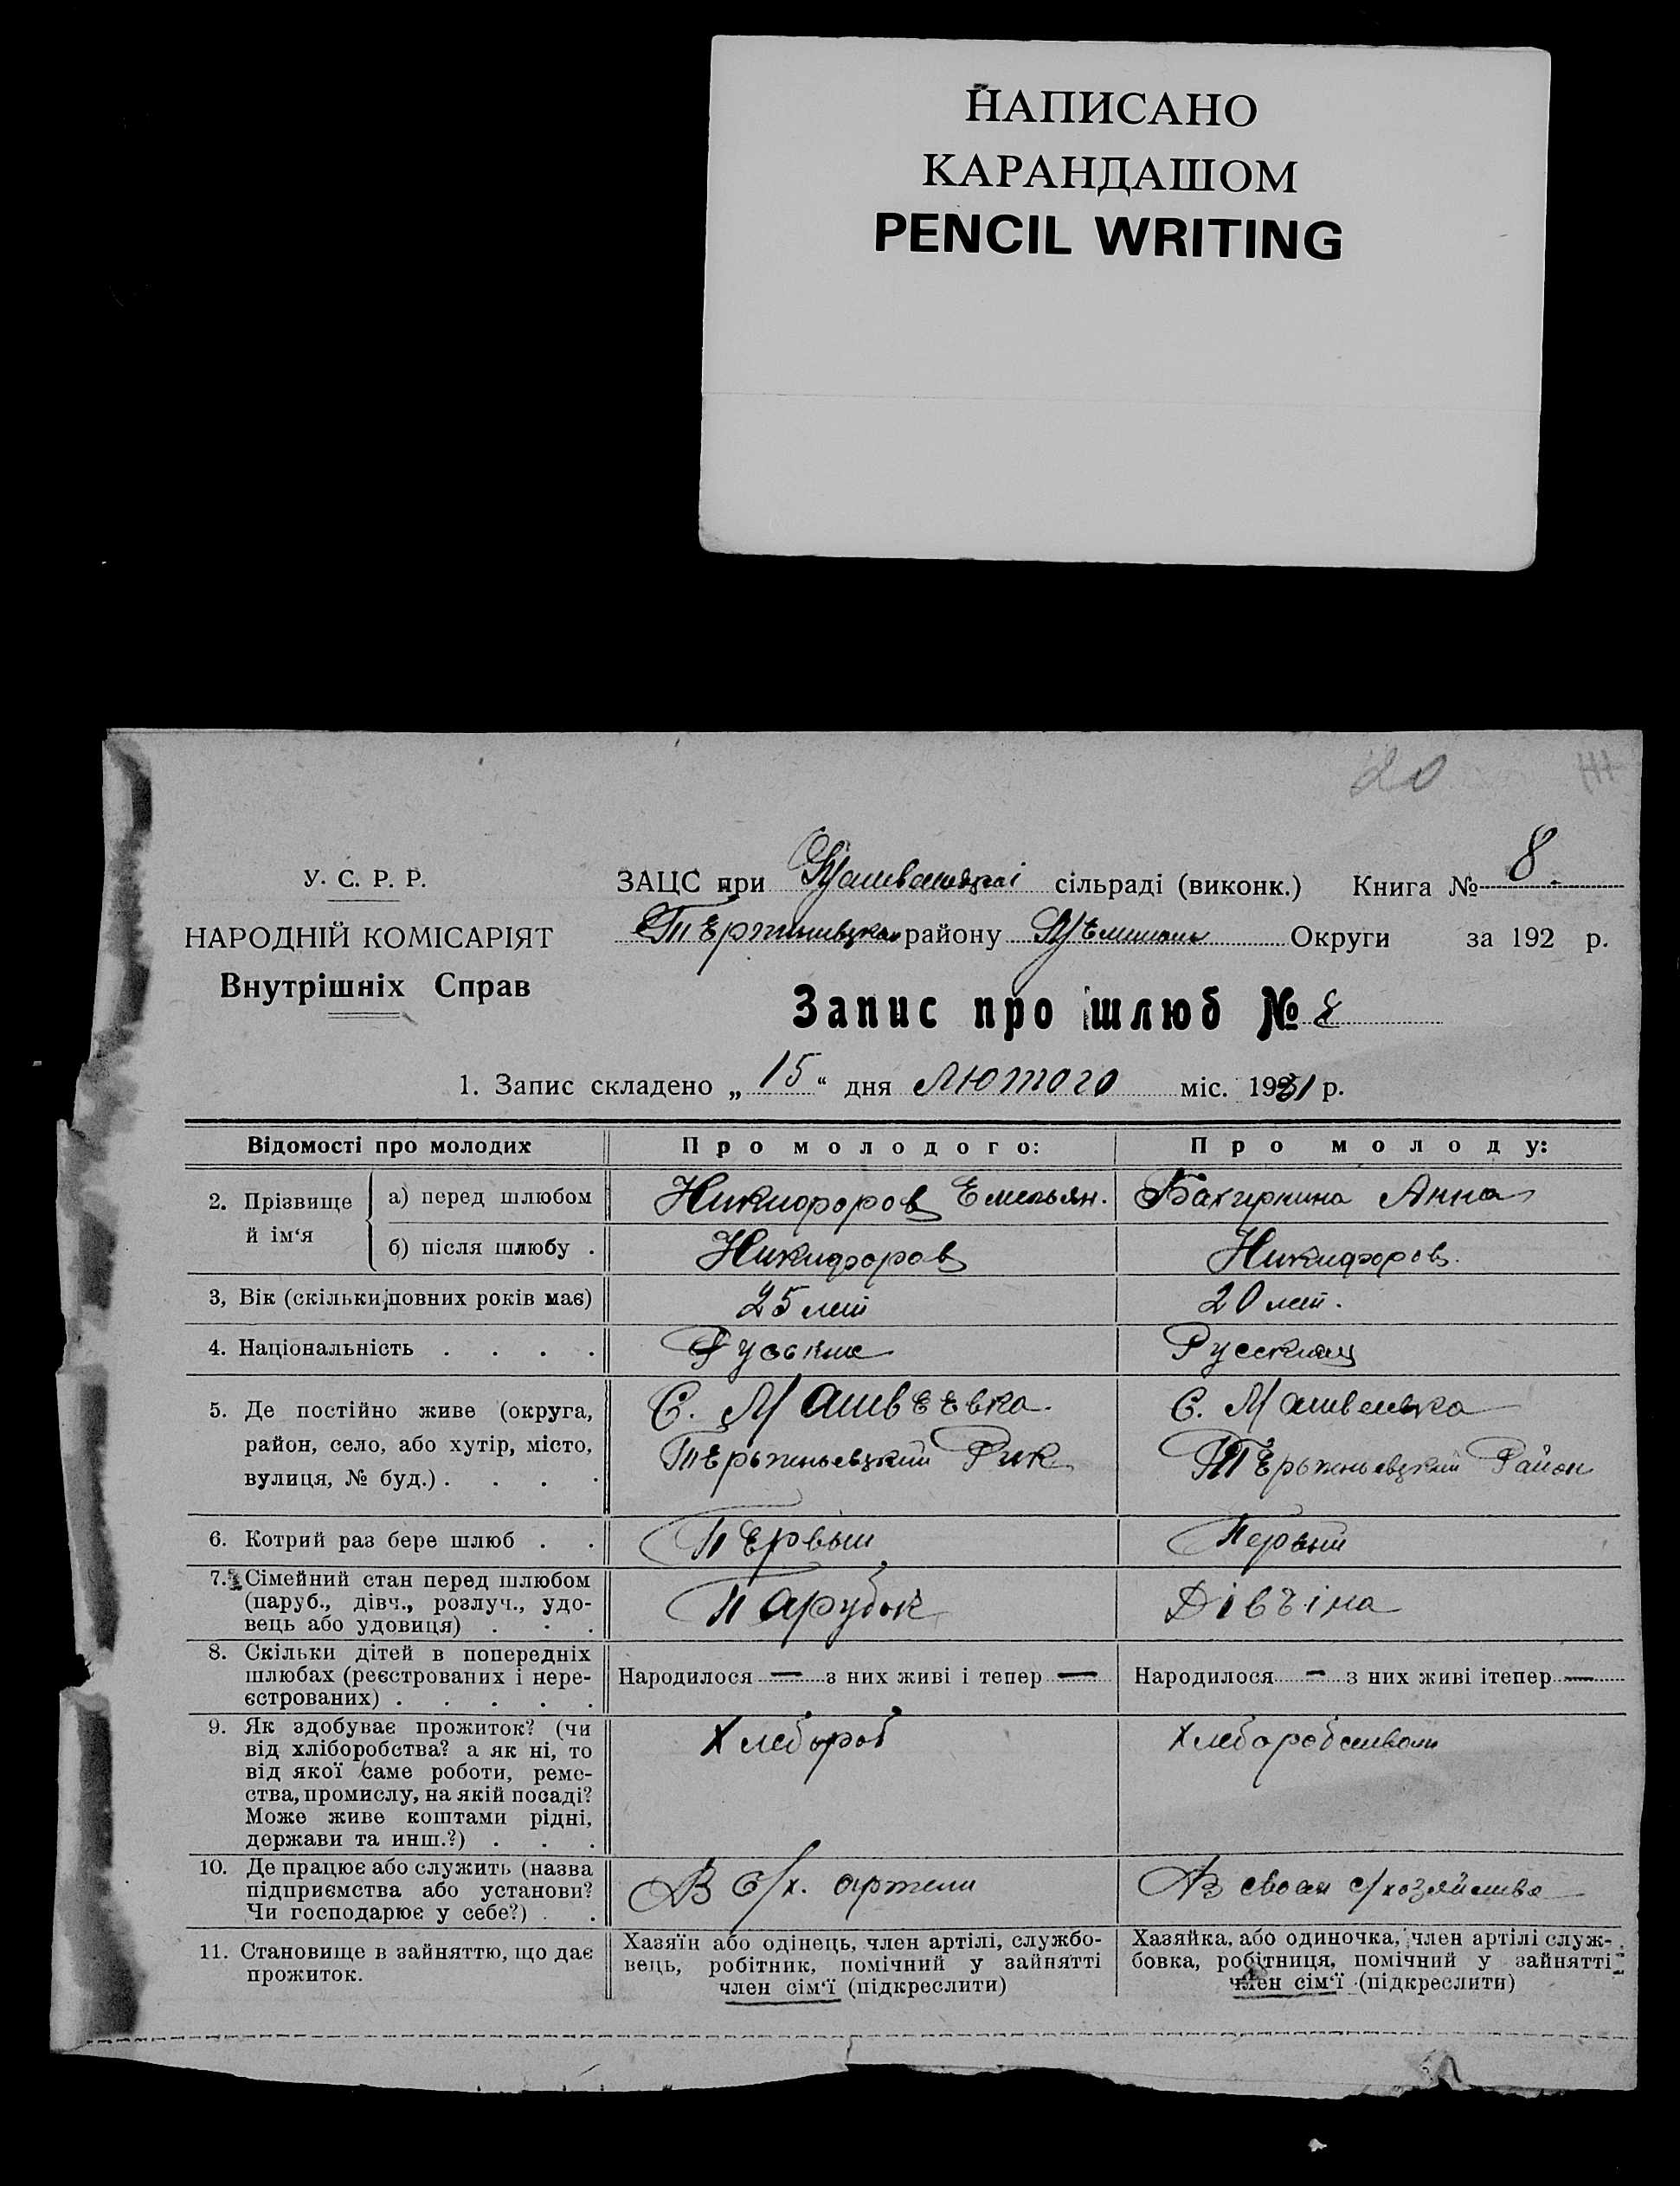 НАПИСАНО
КАРАНДАШОМ
PENCIL WRITING
20
У. С. Р. Р.
НАРОДНІЙ КОМІСАРІЯТ
Внутрішніх Справ
ЗАЦС при сільраді (виконк.) Книга № 8.
району Округи за 192 р.
Запис про шлюб № 8
1. Запис складено „ 15 “ дня лютого міс. 1931 р.
Відомості про молодих Про молодого: Про молоду:
2. Прізвище й ім‘я а) перед шлюбом Никифоров Емельян. Анна
б) після шлюбу . Никифоров Никифоров.
3, Вік (скільки повних років має) 25 лет 20 лет.
4. Національність . . . .
5. Де постійно живе (округа, С. Матвеевка. С. Матвеевка
район, село, або хутір, місто, Рик Район
вулиця, № буд.) . . . .
6. Котрий раз бере шлюб . . Первый Первый
7. Сімейний стан перед шлюбом
(паруб., дівч., розлуч., удо- Парубок Дівчіна
вець або удовиця) . . .
8. Скільки дітей в попередніх
шлюбах (реєстрованих і нере- Народилося — з них живі і тепер — Народилося — з них живі ітепер —
єстрованих) . . . . .
9. Як здобуває прожиток? (чи Хлебороб Хлеборобством
від хліборобства? а як ні, то
від якої саме роботи, реме-
ства, промислу, на якій посаді?
Може живе коштами рідні,
держави та инш.?) . . .
10. Де працює або служить (назва
підприємства або установи? В с/х. артели В своем с/хозяйстве
Чи господарює у себе?) . .
11. Становище в зайняттю, що дає
прожиток.
Хазяїн або одінець, член артілі, службо-
вець, робітник, помічний у зайнятті
член сім‘ї (підкреслити)
Хазяйка, або одиночка, член артілі служ-
бовка, робітниця, помічний у зайнятті
член сім‘ї (підкреслити)